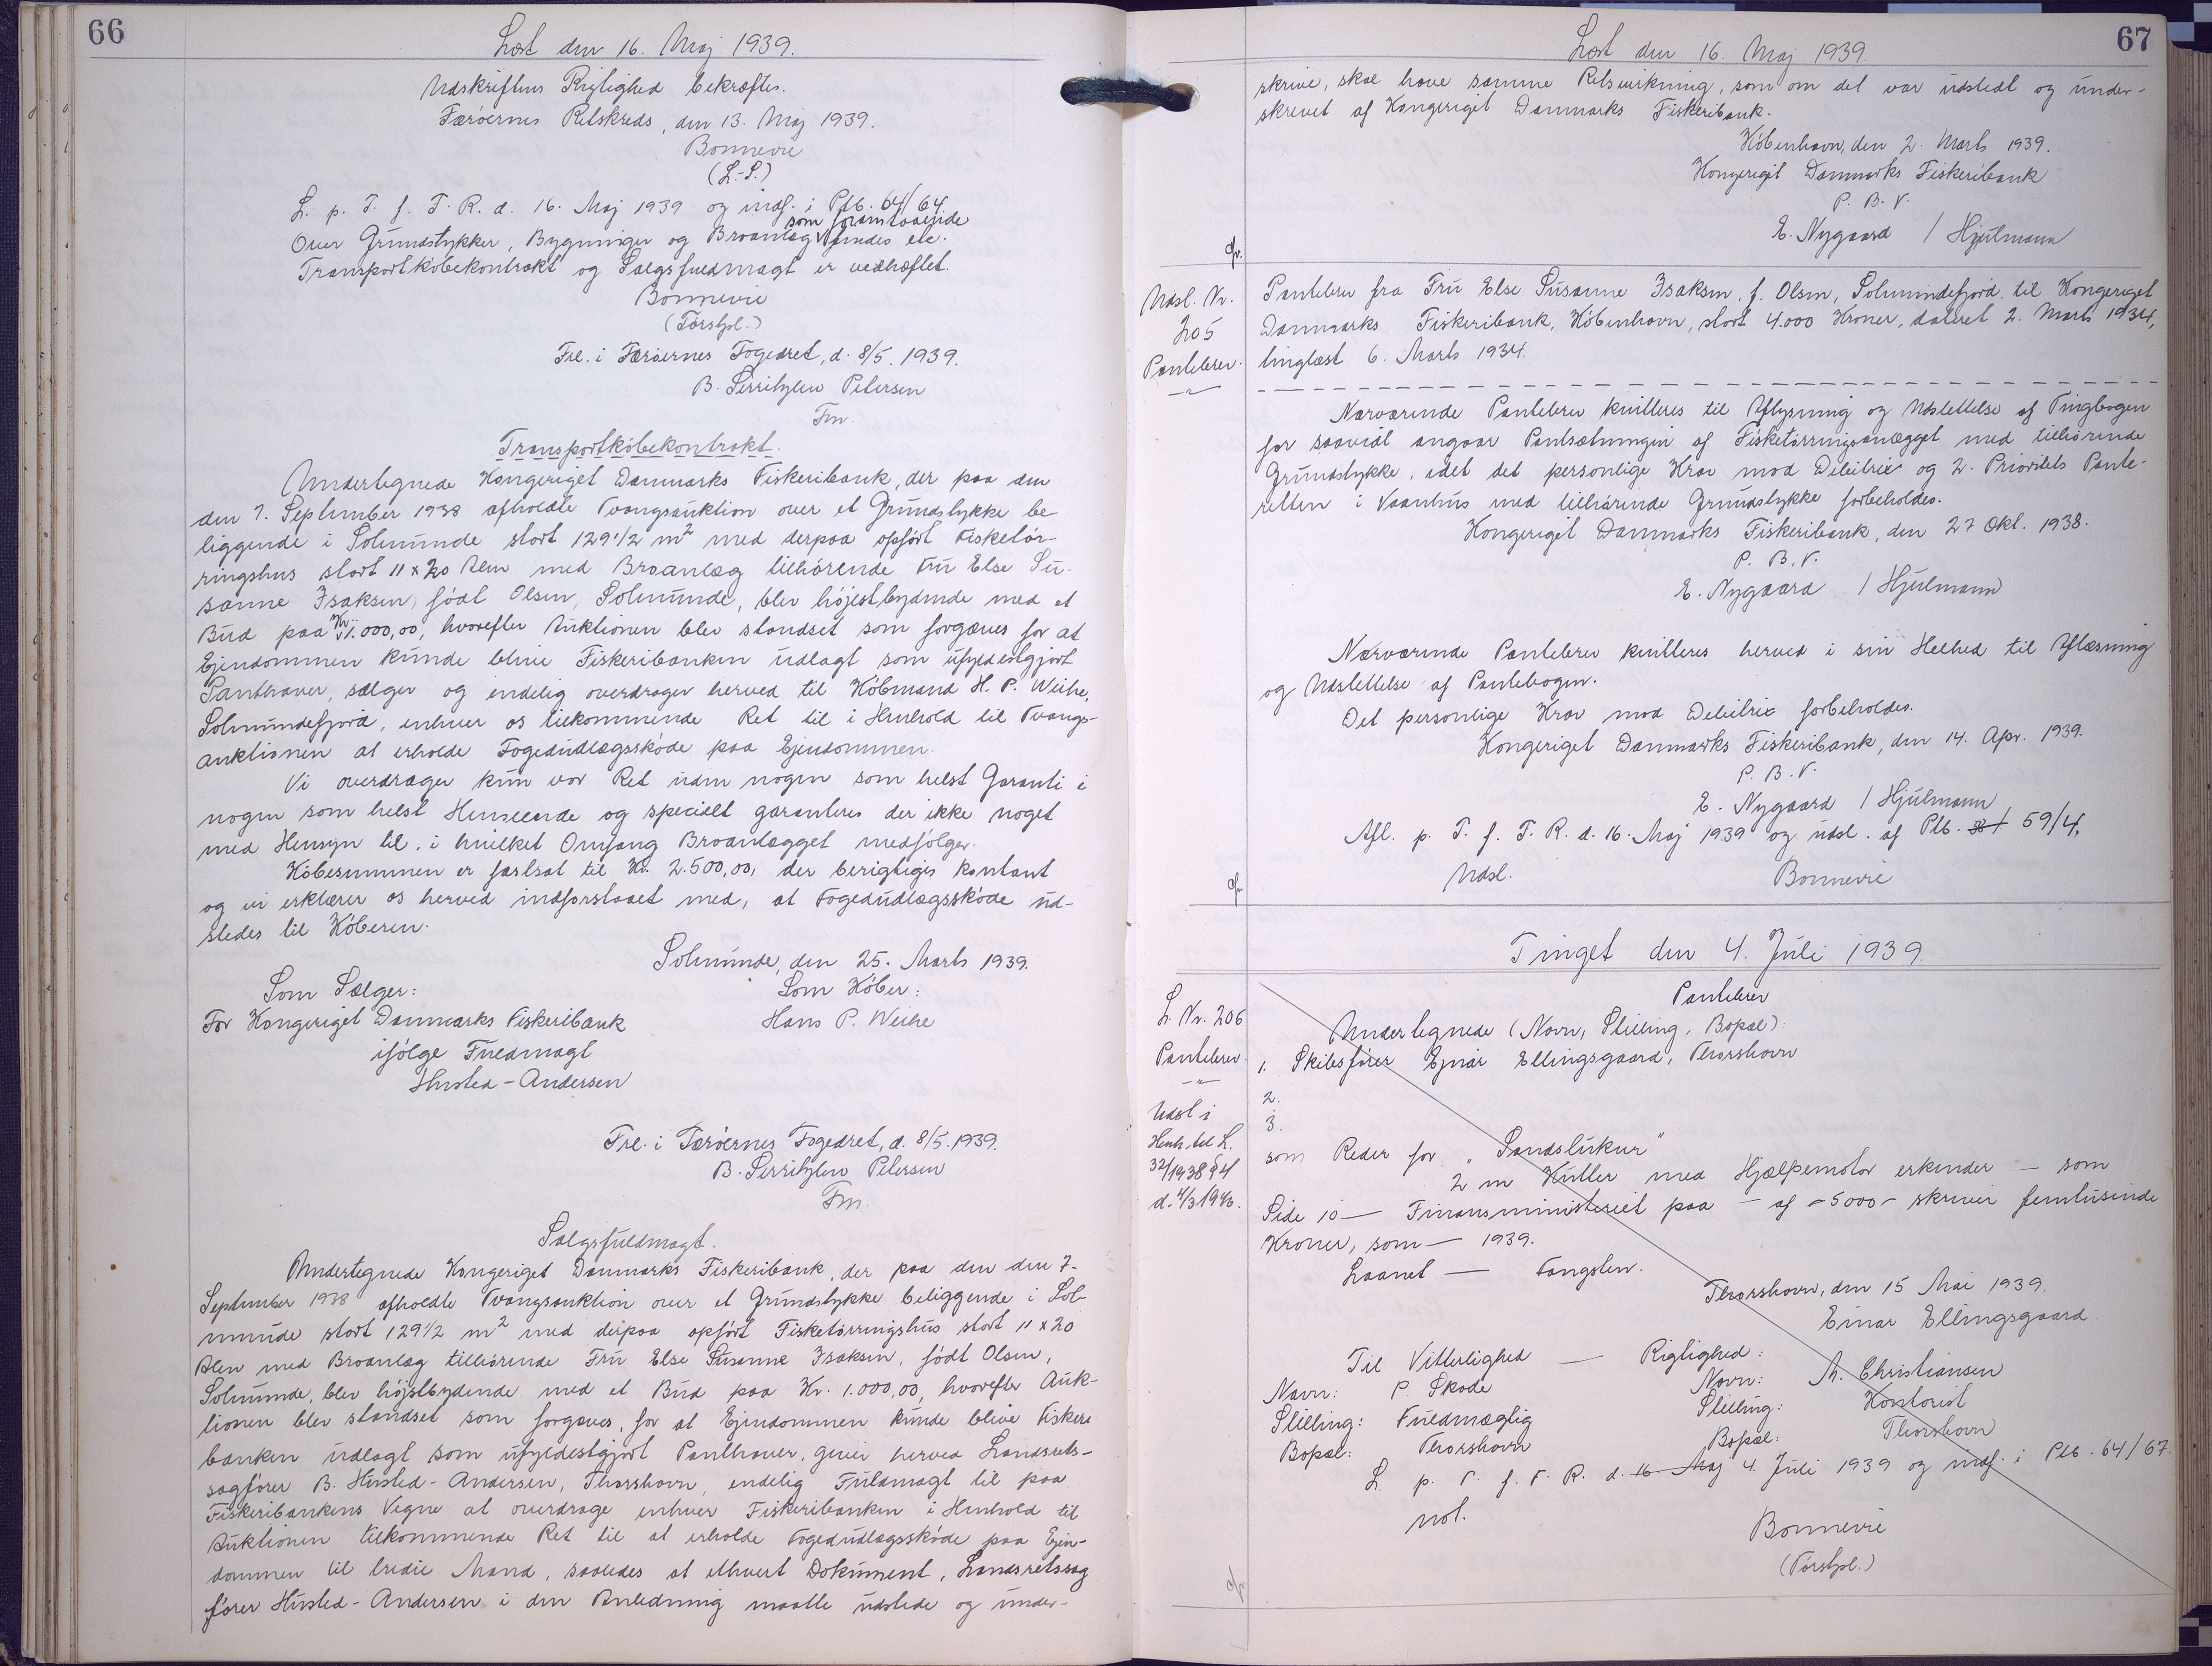 66
Læst den 16. Maj 1939.
Udskriftens Rigtighed bekræftes.
Færöernes Retskreds, den 13. Maj 1939.
Bonnevie
(L.S.)
L. p. T. f. T. R. d. 16. Maj 1939 og indf. i Ptb. 64/64.
som foranstaaende
Over Grundstykker, Bygninger og Broanlæg findes etc.
Transportköbekontrakt og Salgsfuldmagt er vedhæftet.
Bonnevie
(Torshpl.)
Fre. i Færöernes Fogedret, d. 8/5. 1939.
B. Serritzlew Petersen
Fm.
Transportköbekontrakt.
Undertegnede Kongeriget Danmarks Fiskeribank, der paa den
den 7. September 1938 afholdte Tvangsauktion over et Grundstykke be
liggende i Solmunde stort 129 1/2 m² med derpaa opfört Fisketör-
ringshus stort 11 x 20 Alen med Broanlæg tilhörende Fru Else Su-
sanne Isaksen, födt Olsen, Solmunde, blev höjestbydende med et
Bud paa Kr. 1.000,00, hvorefter Auktionen blev standset som forgæves for at
Ejendommen kunde blive Fiskeribanken udlagt som ufyldestgjort
Panthaver, sælger og endelig overdrager herved til Köbmand H. P. Weihe,
Solmundefjord, enhver os tilkommende Ret til i Henhold til Tvangs-
auktionen at erholde Fogedudlægsskøde paa Ejendommen.
Vi overdrager kun vor Ret uden nogen som helst Garanti i
nogen som helst Henseende og specielt garanteres der ikke noget
med Hensyn til, i hvilket Omfang Broanlægget medfölger.
Köbesummen er fastsat til Kr. 2.500,00, der berigtiges kontant
og vi erklærer os herved indforstaaet med, at Fogedudlægsskøde ud-
stedes til Köberen.
Solmunde, den 25. Marts 1939.
Som Sælger:
Som Köber:
For Kongeriget Danmarks Fiskeribank
Hans P. Weihe
ifölge Fuldmagt
Husted-Andersen
Fre. i Færöernes Fogedret, d. 8/5. 1939.
B. Serritzlew Petersen
Fm.
Salgsfuldmagt.
Undertegnede Kongeriget Danmarks Fiskeribank, der paa den den 7.
September 1938 afholdte Tvangsauktion over et Grundstykke beliggende i Sol-
munde stort 129 1/2 m² med derpaa opfört Fisketörringshus stort 11 x 20
Alen med Broanlæg tilhörende Fru Else Susanne Isaksen, födt Olsen,
Solmunde, blev höjstbydende med et Bud paa Kr. 1.000,00, hvorefter Auk-
tionen blev standset som forgæves, for at Ejendommen kunde blive Fiskeri
banken udlagt som ufyldestgjort Panthaver, giver herved Landsrets-
sagförer B. Husted-Andersen, Thorshavn, endelig Fuldmagt til paa
Fiskeribankens Vegne at overdrage enhver Fiskeribanken i Henhold til
Auktionen tilkommende Ret til at erholde Fogedudlægsskøde paa Ejen-
dommen til tredie Mand, saaledes at ethvert Dokument, Landsretssag
förer Husted-Andersen i den Anledning maatte udstede og under-
67
Læst den 16. Maj 1939.
skrive, skal have samme Retsvirkning, som om det var udstedt og under-
skrevet af Kongeriget Danmarks Fiskeribank.
Köbenhavn, den 2. Marts 1939.
Kongeriget Danmarks Fiskeribank
P. B. V.
E. Nygaard / Hjulmann
Udsl. Nr.
205
Pantebrev.
Pantebrev fra Fru Else Susanne Isaksen, f. Olsen, Solmundefjord, til Kongeriget
Danmarks Fiskeribank, Köbenhavn, stort 4.000 Kroner, dateret 2. Marts 1934,
tinglæst 6. Marts 1934.
Nærværende Pantebrev kvitteres til Aflysning og Udslettelse af Tingbogen
for saavidt angaar Pantsætningen af Fisketörringsanlægget med tilhörende
Grundstykke, idet det personlige Krav mod Debitrix og 2. Prioritets Pante-
retten i Vaanhus med tilhörende Grundstykke forbeholdes.
Kongeriget Danmarks Fiskeribank, den 27 Okt. 1938.
P. B. V.
E. Nygaard / Hjulmann
Nærværende Pantebrev kvitteres herved i sin Helhed til Aflæsning
og Udslettelse af Pantebogen.
Det personlige Krav mod Debitrix forbeholdes.
Kongeriget Danmarks Fiskeribank, den 14. Apr. 1939.
P. B. V.
E. Nygaard / Hjulmann
Afl. p. T. f. T. R. d. 16. Maj 1939 og udsl. af Ptb. 59/4.
Udsl.
Bonnevie
Tinget den 4. Juli 1939.
L. Nr. 206
Pantebrev.
Udsl i
Henh. til L.
32/1938 § 4
d. 4/3 1946.
Pantebrev
Undertegnede (Navn, Stilling, Bopæl):
1. Skibsförer Ejnar Ellingsgaard, Thorshavn
2.
3.
som Reder for „Sandslukur"
2 m Kutter med Hjælpemotor erkender — som
Side 10 — Finansministeriet paa — af - 5000 - skriver femtusinde
Kroner, som — 1939.
Laanet — Fangsten.
Thorshavn, den 15 Mai 1939.
Einar Ellingsgaard.
Til Vitterlighed — Rigtighed:
Navn: P. Skode
Navn: M. Christiansen
Stilling: Fuldmægtig
Stilling: Kontorist
Bopæl: Thorshavn
Bopæl: Thorshavn
L. p. T. f. T. R. d. 16. Maj 4. Juli 1939 og indf. i Ptb. 64/67.
not.
Bonnevie
(Torshpl.)